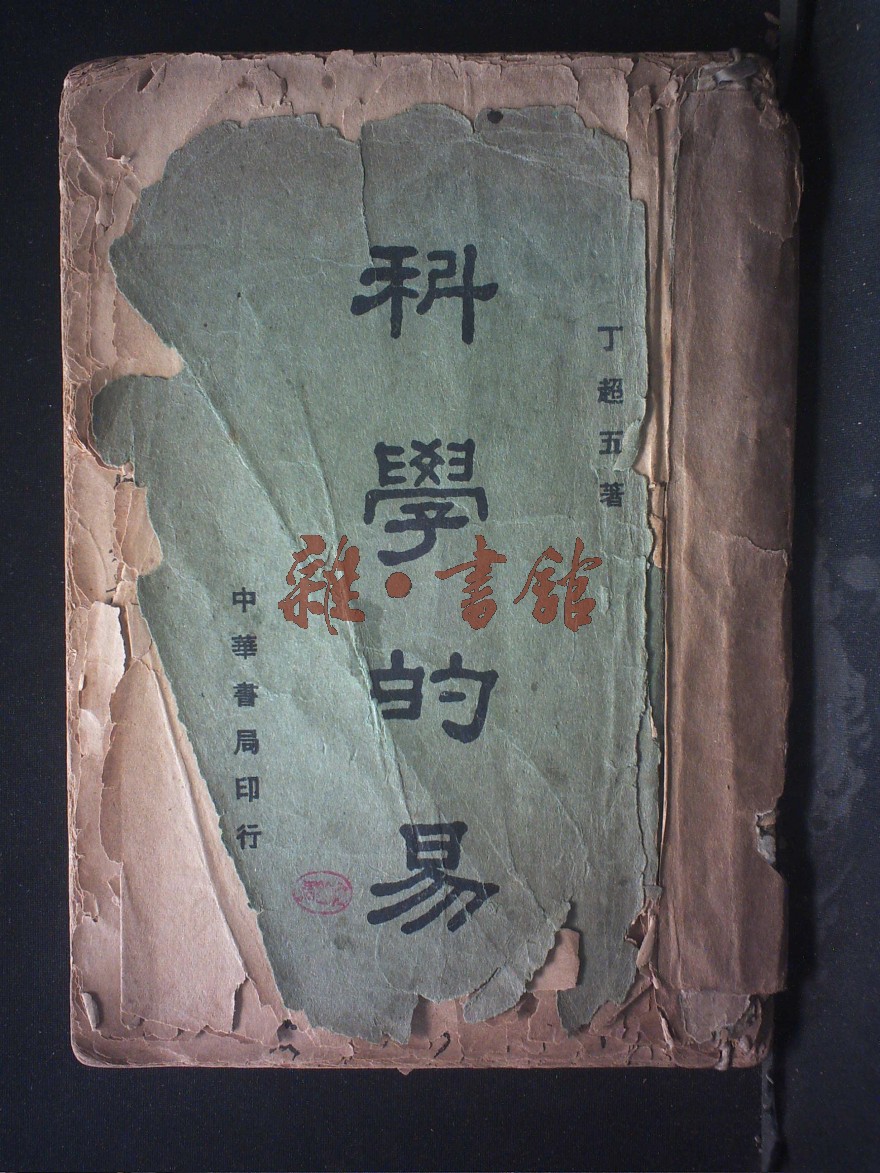 丁超五著
科學的易
中華書局印行
雜·書館